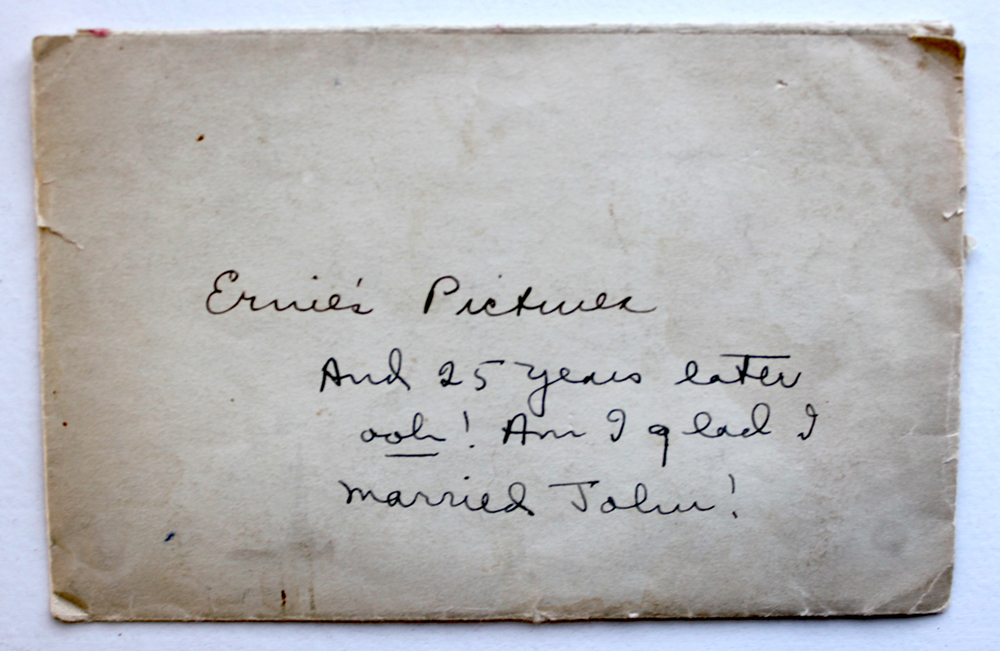 Ernie's Pictures
And 25 years later
ooh! Am I glad I
married John!